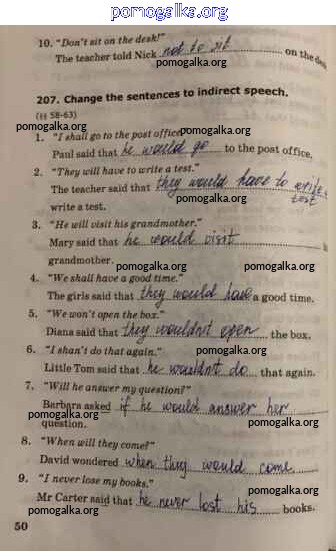 pomogalka.org
10. "Don't sit on the desk!"
The teacher told Nick not to sit on the desk
pomogalka.org
207. Change the sentences to indirect speech.
(§§ 58-63)
pomogalka.org pomogalka.org
1. "I shall go to the post office."
Paul said that he would go to the post office.
pomogalka.org
2. "They will have to write a test."
The teacher said that they would have to write
write a test. test
pomogalka.org
3. "He will visit his grandmother."
Mary said that he would visit
grandmother. pomogalka.org pomogalka.org
4. "We shall have a good time."
The girls said that they would have a good time.
pomogalka.org
5. "We won't open the box."
Diana said that they wouldn't open the box.
6. "I shan't do that again." pomogalka.org
Little Tom said that he wouldn't do that again.
7. "Will he answer my question?"
pomogalka.org
Barbara asked if he would answer her
pomogalka.org
question. pomogalka.org
8. "When will they come?"
David wondered when they would come
9. "I never lose my books." pomogalka.org
Mr Carter said that he never lost his books.
pomogalka.org pomogalka.org
50
pomogalka.org